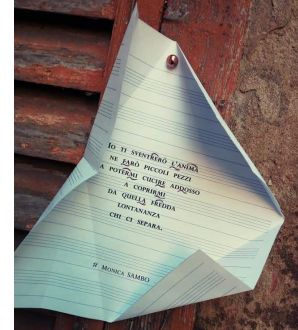 Io ti sventrerò l'anima
ne farò piccoli pezzi
a potermi cucire addosso
a coprirmi
da quella fredda
lontananza
chi ci separa.
# Monica Sambo